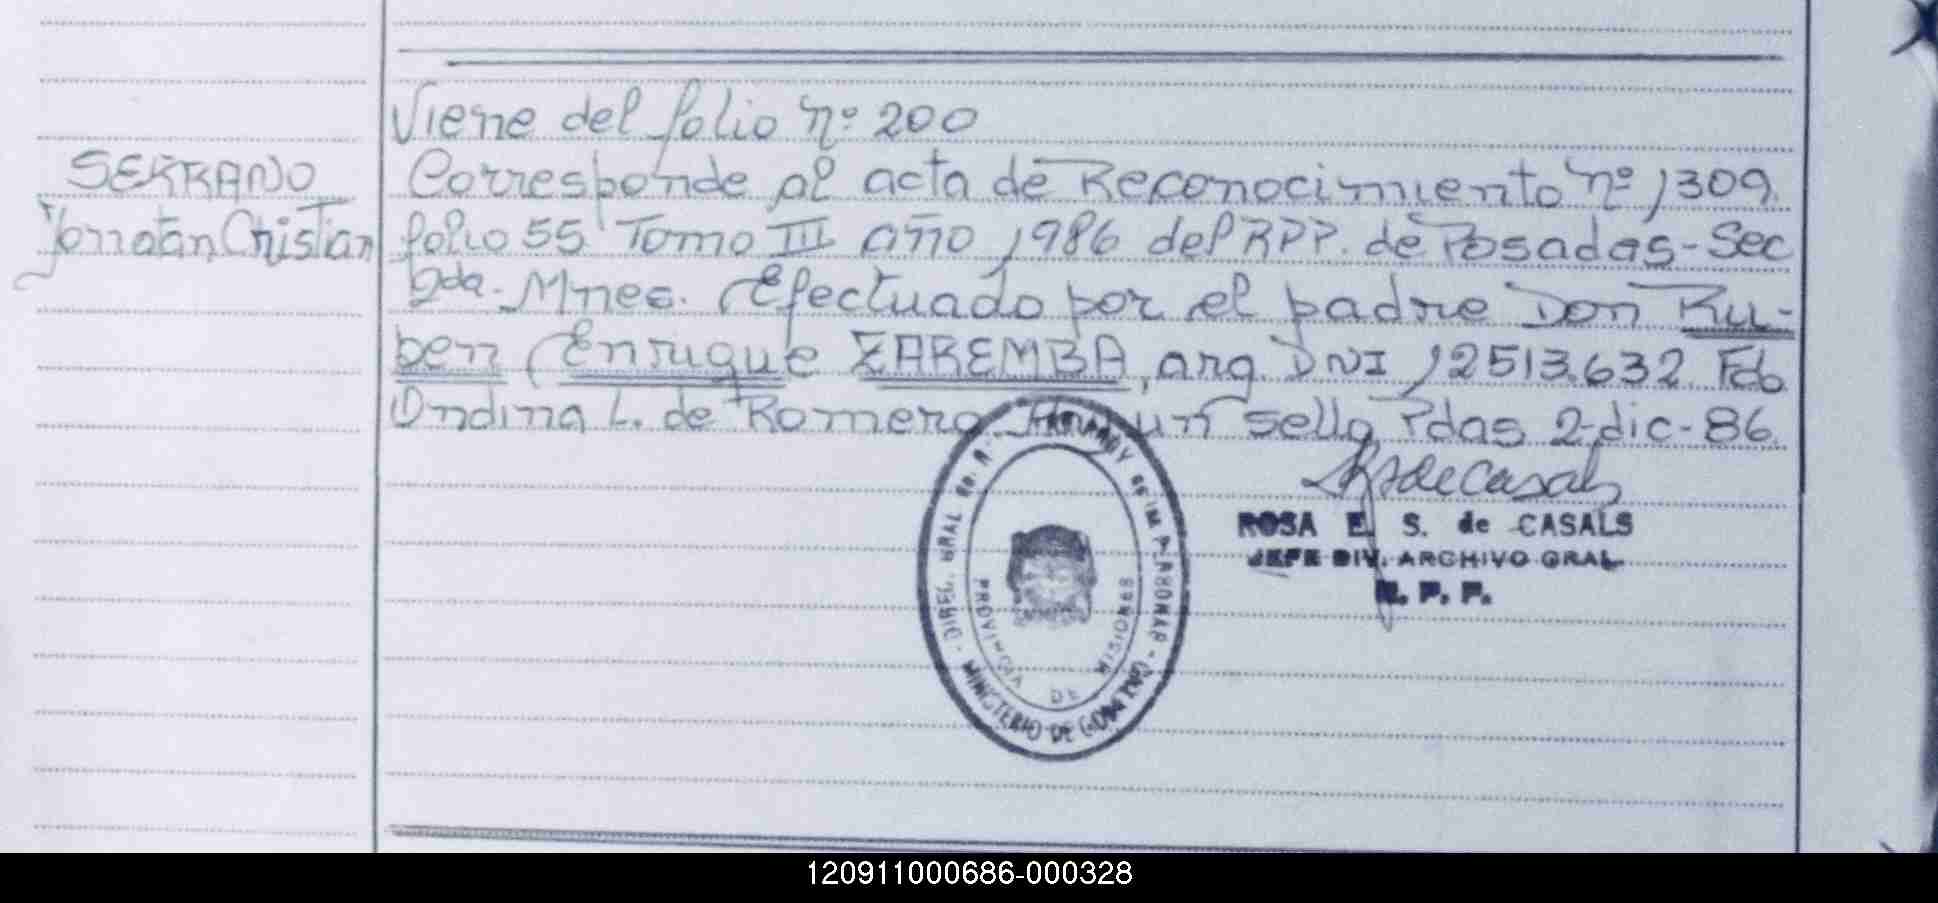 Viene del folio nº 200
SERRANO
Yonnatan Christian
Corresponde al acta de Reconocimiento nº 1309
folio 55 Tomo III año 1986 del RPP. de Posadas-Sec
2da. Mnes. Efectuado por el padre Don Ru-
ben Enrique ZAREMBA, arg. DNI 12513.632 Fdo
Ondina L. de Romero un sello Pdas 2-dic-86.
ROSA E. S. de CASALS
JEFE DIV. ARCHIVO GRAL
R. P. P.
DIREC. GRAL
PROVINCIA DE MISIONES
MINISTERIO DE GOBIERNO
120911000686-000328